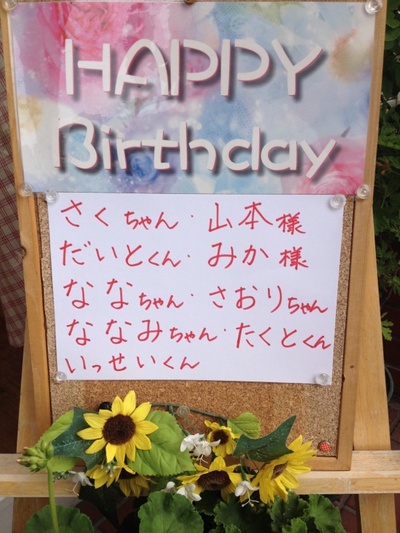 HAPPY
Birthday
さくちゃん・山本様
だいとくん・みか様
ななちゃん・さおりちゃん
ななみちゃん・たくとくん
いっせいくん